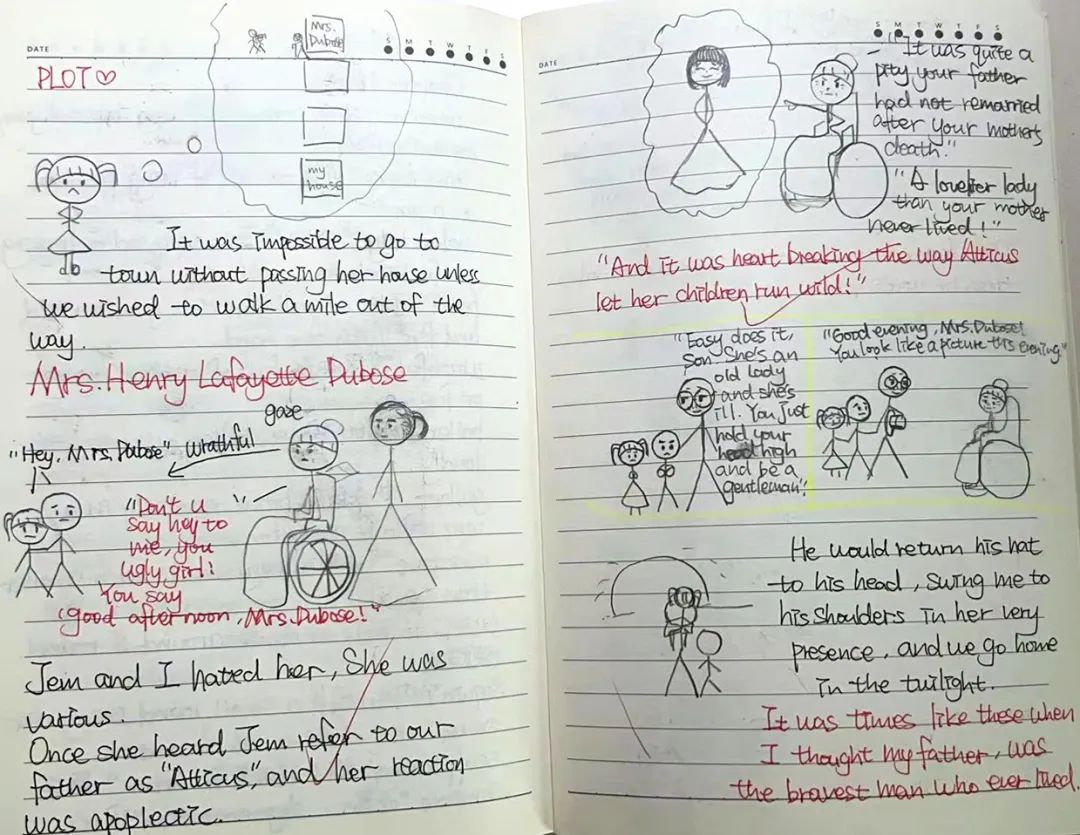 DATE
S M T W T F S
Mrs.
Dubose
PLOT♡
my
house
It was impossible to go to
town without passing her house unless
we wished to walk a mile out of the
way.
Mrs. Henry Lafayette Dubose
gaze
"Hey. Mrs. Dubose"
wrathful
"Don't u
say hey to
me, you
ugly girl!
You say
"good afternoon, Mrs. Dubose!"
Jem and I hated her, She was
various.
Once she heard Jem refer to our
father as "Atticus", and her reaction
was apoplectic.
DATE
S M T W T F S
"It was quite a
pity your father
had not remarried
after your mother's
death."
"A lovelier lady
than your mother
never lived!"
"And it was heart breaking the way Atticus
let her children run wild!"
"Easy does it,
son. She's an
old lady
and she's
ill. You just
hold your
head high
and be a
gentleman".
"Good evening, Mrs. Dubose!
You look like a picture this evening"
He would return his hat
to his head, swing me to
his shoulders in her very
presence, and we go home
in the twilight.
It was times like these when
I thought my father, was
the bravest man who ever lived.